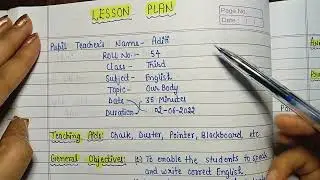 LESSON PLAN
Page No.
Date
Pupil Teacher's Name - Aditi
ROLL No. - 54
Class - Third
Subject - English
Topic - Our Body
Date - 35 Minutes
Duration - 02-06-2022
Teaching Aids: Chalk, Duster, Pointer, Blackboard, etc
General Objectives: To enable the students to speak
and write correct English